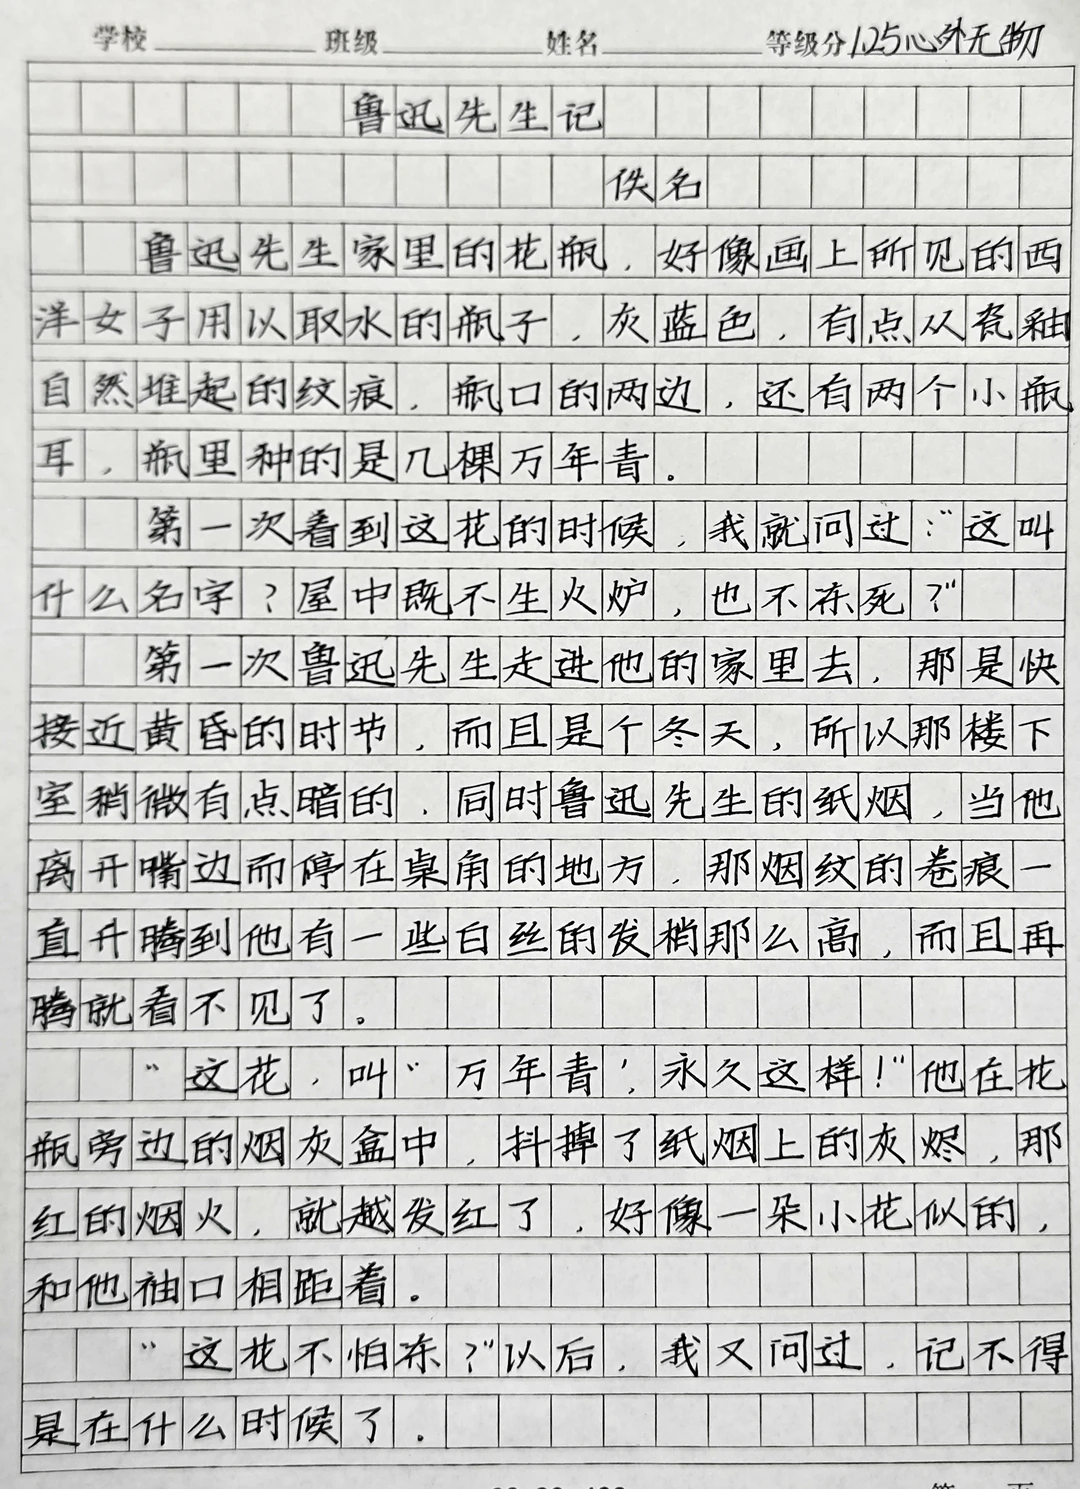 学校 班级 姓名 等级分 125心外无物
鲁迅先生记
佚名
鲁迅先生家里的花瓶，好像画上所见的西
洋女子用以取水的瓶子，灰蓝色，有点从瓷釉
自然堆起的纹痕，瓶口的两边，还有两个小瓶
耳，瓶里种的是几棵万年青。
第一次看到这花的时候，我就问过：“这叫
什么名字？屋中既不生火炉，也不冻死？”
第一次鲁迅先生走进他的家里去，那是快
接近黄昏的时节，而且是个冬天，所以那楼下
室稍微有点暗的，同时鲁迅先生的纸烟，当他
离开嘴边而停在桌角的地方，那烟纹的卷痕一
直升腾到他有一些白丝的发梢那么高，而且再
腾就看不见了。
“这花，叫“万年青’，永久这样！”他在花
瓶旁边的烟灰盒中，抖掉了纸烟上的灰烬，那
红的烟火，就越发红了，好像一朵小花似的，
和他袖口相距着。
“这花不怕冻？”以后，我又问过，记不得
是在什么时候了。